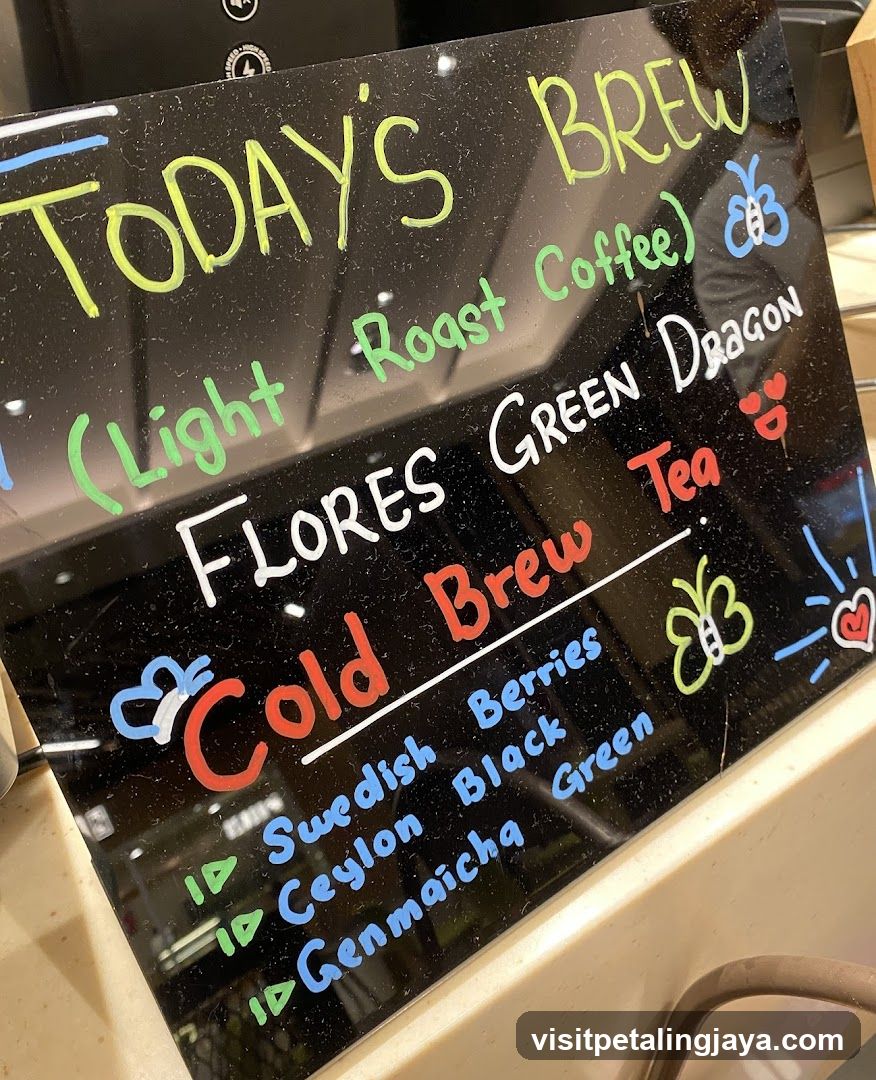 TODAY'S BREW
(Light Roast Coffee)
FLORES GREEN DRAGON
Cold Brew Tea
Swedish Berries
Ceylon Black
Genmaicha Green
visitpetalingjaya.com